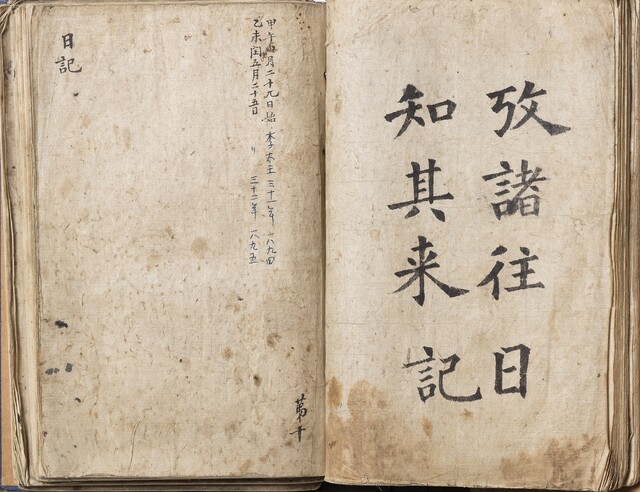 攷諸往日
知其来記
甲午四月二十九日始 李太王三十一年 一八九四
乙未閏五月二十五日 〃 三十二年 一八九五
日記
苐十